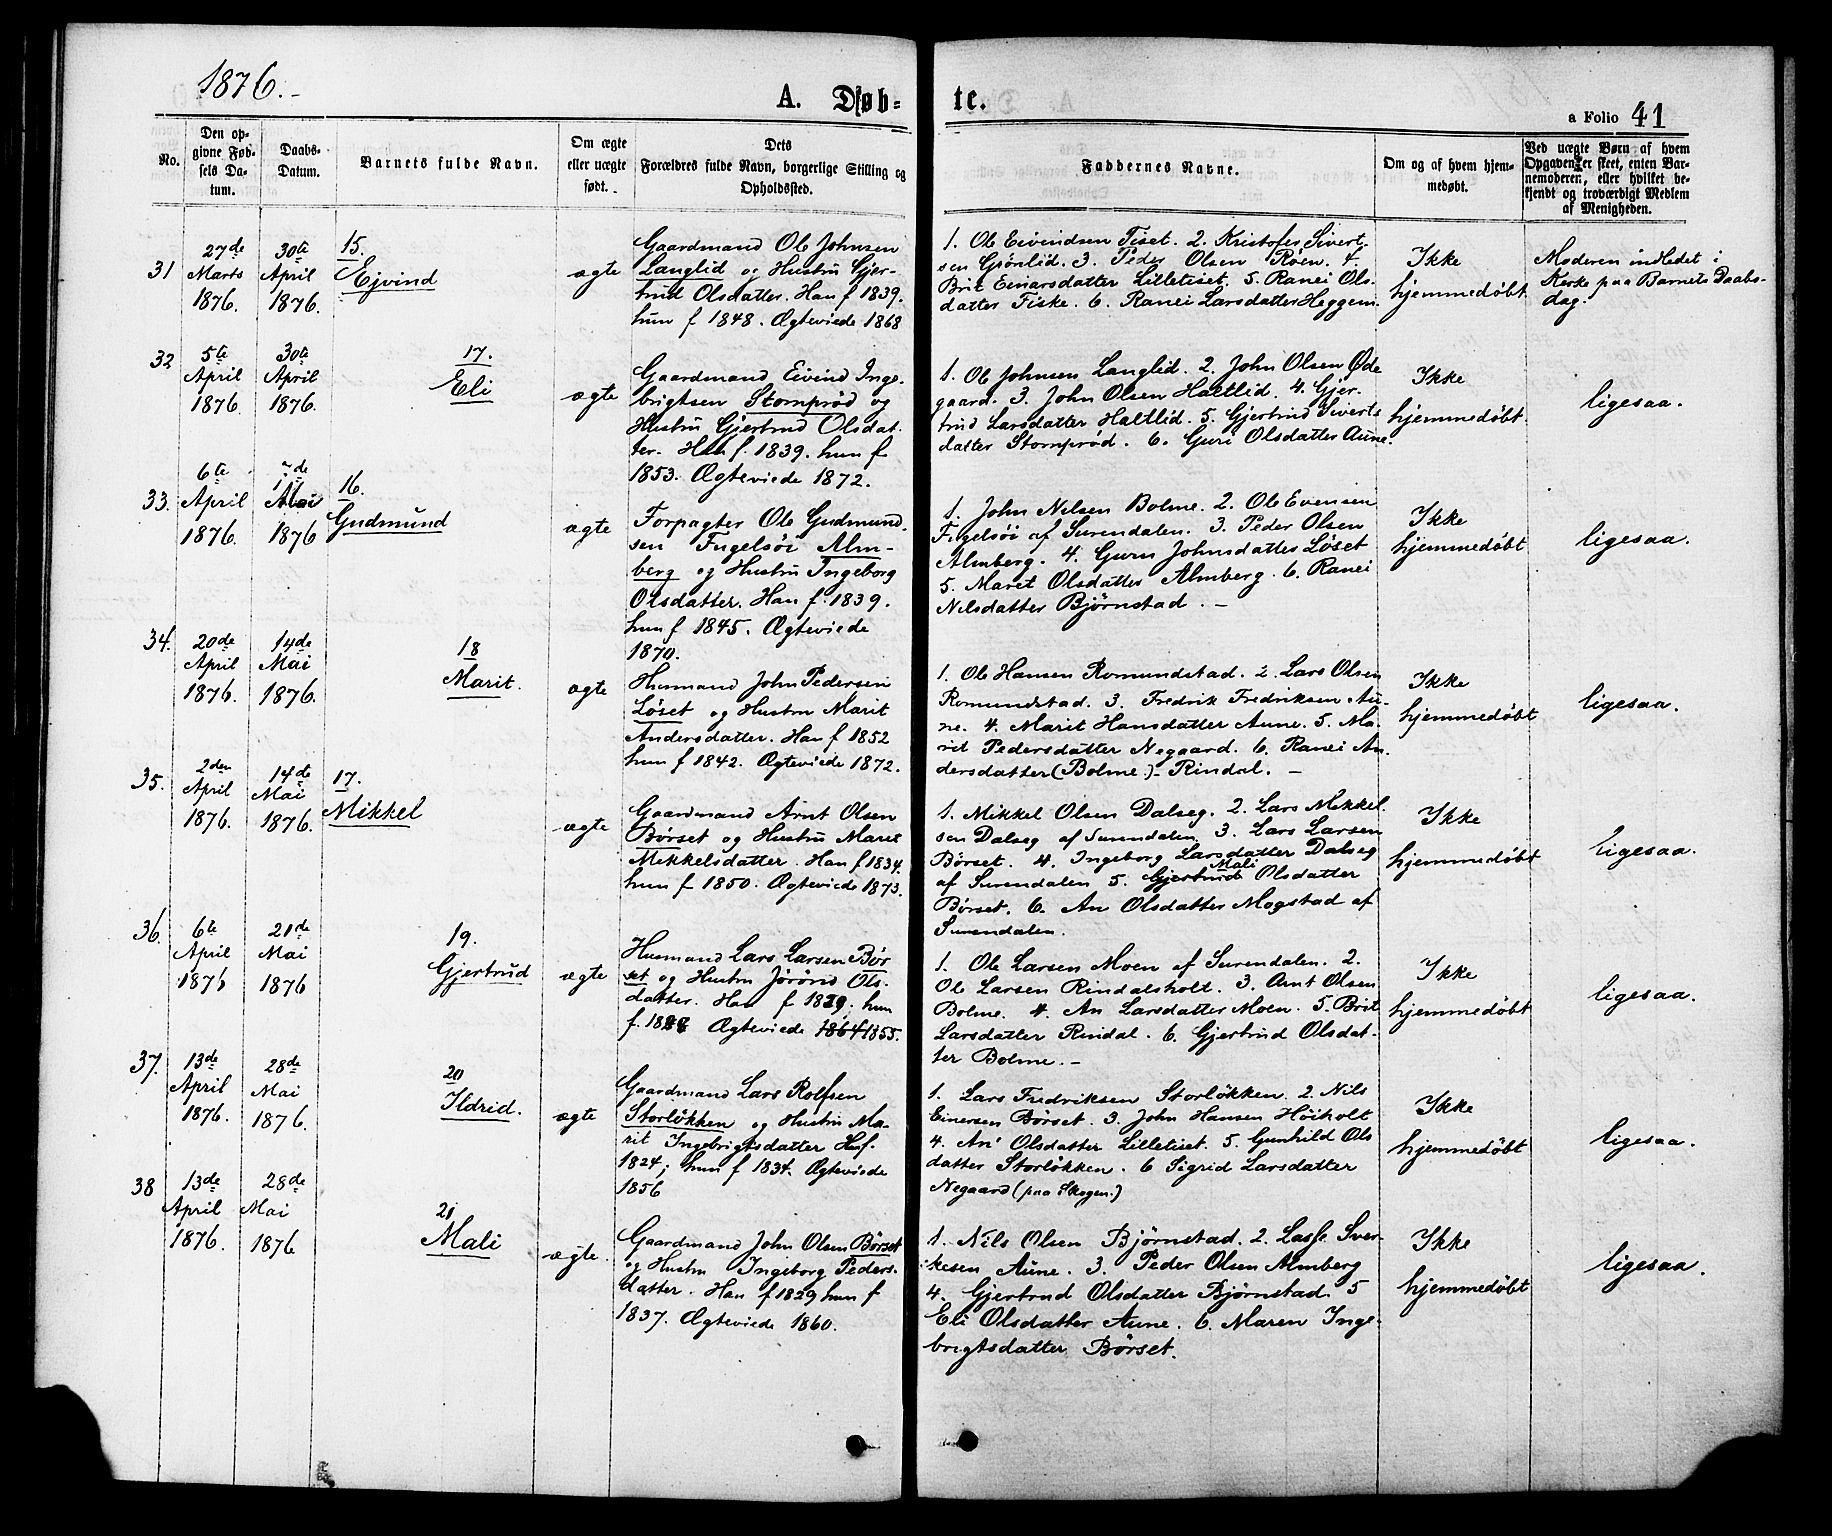 1876.-
A. Døb=
te.
a Folio 41
No.
Den op-
givne Fød-
sels Da-
tum.
Daabs-
Datum.
Barnets fulde Navn.
Om ægte
eller uægte
født.
Dets
Forældres fulde Navn, borgerlige Stilling og
Opholdssted.
Faddernes Navne.
Om og af hvem hjem-
medøbt.
Ved uægte Børn af hvem
Opgaven er skeet, enten Bar-
nemoderen, eller hvilket be-
kjendt og troværdigt Medlem
af Menigheden.
31
27de
Marts
1876.
30te
April
1876.
15.
Ejvind
ægte
Gaardmand Ole Johnsen
Langlid og Hustru Gjer-
trud Olsdatter. Han f 1839.
hun f 1848. Ægteviede 1868
1. Ole Eivindsen Tiset. 2. Kristofer Sivert-
sen Gjønlid. 3. Peder Olsen Røen. 4.
Brit Einarsdatter Lilletiset. 5. Ranei Ols-
datter Fiske. 6. Ranei Larsdatter Heggem.
Ikke
hjemmedøbt
Moderen indledet i
Kirke paa Barnets Daabs-
dag.
32
5te
April
1876
30te
April
1876.
17.
Eli
ægte
Gaardmand Eivind Inge-
brigtsen Stomprød og
Hustru Gjertrud Olsdat-
ter. Han f. 1839. hun f
1853. Ægteviede 1872.
1. Ole Johnsen Langlid. 2. John Olsen Øde
gaard. 3. John Olsen Haltlid. 4. Gjer-
trud Larsdatter Haltlid. 5. Gjertrud Siverts
datter Stomprød. 6. Guri Olsdatter Aune.
Ikke
hjemmedøbt
ligesaa.
33.
6te
April
1876.
7de
Mai
1876
16.
Gudmund
ægte
Forpagter Ole Gudmund-
sen Fugelsøi Alm-
berg og Hustru Ingeborg
Olsdatter. Han f. 1839.
hun f 1845. Ægteviede
1870.
1. John Nilsen Bolme. 2. Ole Evensen
Fugelsøi af Surendalen. 3. Peder Olsen
Almberg. 4. Guru Johnsdatter Løset
5. Maret Olsdatter Almberg. 6. Ranei
Nilsdatter Bjørnstad. -
Ikke
hjemmedøbt
ligesaa.
34.
20de
April
1876.
14de
Mai
1876.
18
Marit.
ægte
Husmand John Pedersen
Løset og Hustru Marit
Andersdatter. Han f 1852
hun f 1842. Ægteviede 1872.
1. Ole Hansen Romundstad. 2. Lars Olsen
Romundstad. 3. Fredrik Fredriksen Au-
ne. 4. Marit Hansdatter Aune. 5. Ma-
rit Pedersdatter Negaard. 6. Ranei An-
dersdatter (Bolme) - Rindal. -
Ikke
hjemmedøbt
ligesaa.
35.
2den
April
1876.
14de
Mai
1876.
17.
Mikkel
ægte
Gaardmand Arnt Olsen
Børset og Hustru Maret
Mikkelsdatter. Han f 1834.
hun f 1850. Ægteviede 1873.
1. Mikkel Olsen Dalseg. 2. Lars Mikkel-
sen Dalseg af Surendalen 3. Lars Larsen
Børset. 4. Ingeborg Larsdatter Dalseg
Mali
af Surendalen 5. Gjertrud Olsdatter
Børset. 6. An Olsdatter Mogstad af
Surendalen.
Ikke
hjemmedøbt
ligesaa.
36.
6te
April
1876
21de
Mai
1876
19.
Gjertrud
ægte
Husmand Lars Larsen Bør
set og Hustru Jørønd Ols-
datter. Han f 1829; hun
f. 18 Ægteviede 1864 1855.
1. Ole Larsen Moen af Surendalen. 2.
Ole Larsen Rindalsholt. 3. Arnt Olsen
Bolme. 4. An Larsdatter Moen. 5. Brit
Larsdatter Rindal. 6. Gjertrud Olsdat-
ter Bolme. -
Ikke
hjemmedøbt
ligesaa.
37.
13de
April
1876.
28de
Mai
1876.
20
Ildrid.
ægte
Gaardmand Lars Rolfsen
Storløkken og Hustru Ma-
rit Ingebrigtsdatter Han f.
1824; hun f 1834. Ægteviede
1856
1. Lars Fredriksen Storløkken. 2. Nils
Einersen Børset. 3. John Hansen Høiholt
4. An Olsdatter Lilletiset. 5. Gunhild Ols
datter Storløkken. 6 Sigrid Larsdatter
Negaard (paa Skogen.)
Ikke
hjemmedøbt
ligesaa.
38
13de
April
1876.
28de
Mai
1876
21
Mali
ægte.
Gaardmand John Olsen Børset
og Hustru Ingeborg Peders-
datter. Han f 1829 hun f
1837. Ægteviede 1860.
1. Nils Olsen Bjørnstad. 2. Lasse Sver-
kesen Aune. 3. Peder Olsen Almberg
4. Gjertrud Olsdatter Bjørnstad. 5
Eli Olsdatter Aune. 6. Maren Inge-
brigtsdatter Børset.
Ikke
hjemmedøbt
ligesaa.